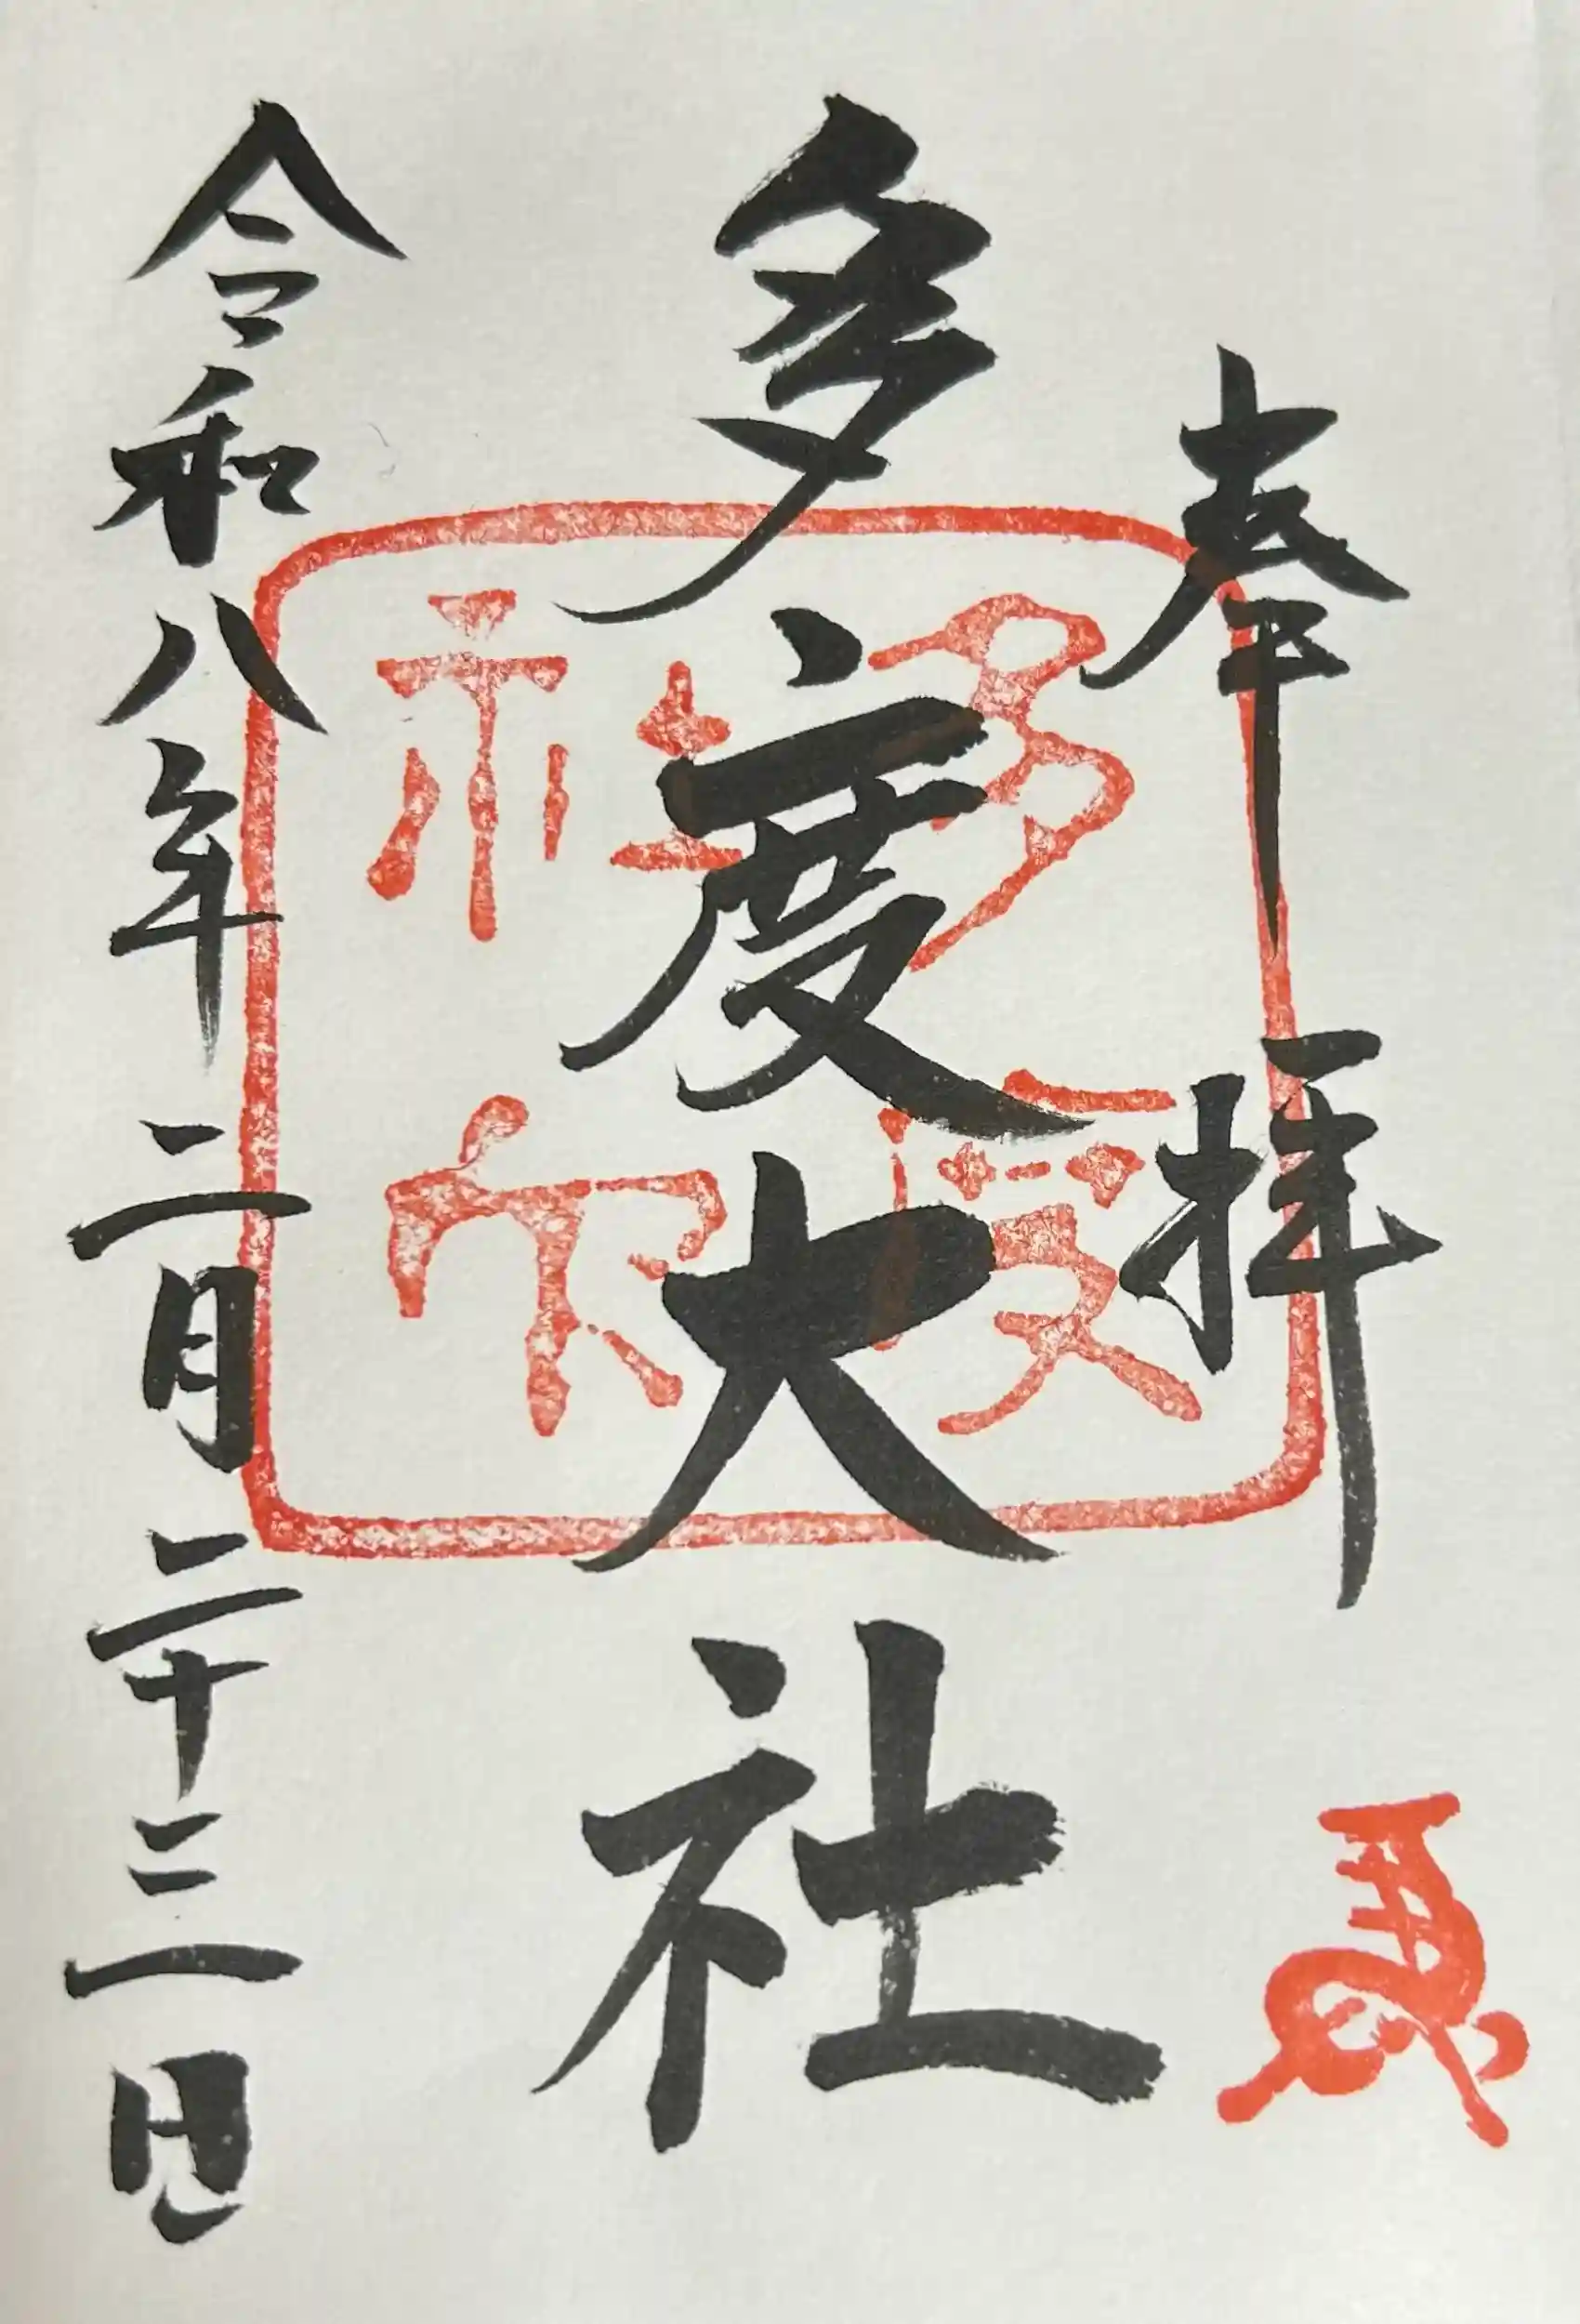 奉拝
多度大社
多度社印
令和八年二月二十三日